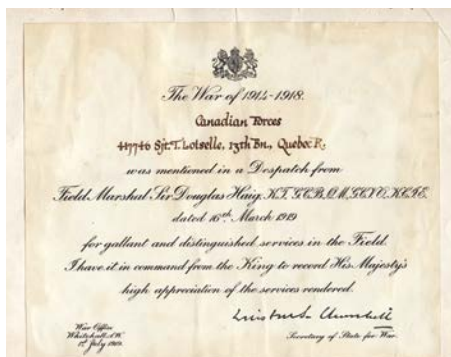 The War of 1914-1918.
Canadian Forces
417746 Sjt. T. Loiselle, 13th Bn., Quebec R.
was mentioned in a Despatch from
Field Marshal Sir Douglas Haig, K.T. G.C.B. O.M. G.C.V.O. K.C.I.E.
dated 16th March 1919
for gallant and distinguished services in the Field.
I have it in command from the King to record His Majesty's
high appreciation of the services rendered.
Winston S. Churchill
War Office
Whitehall, S.W.
1st July 1919.
Secretary of State for War.